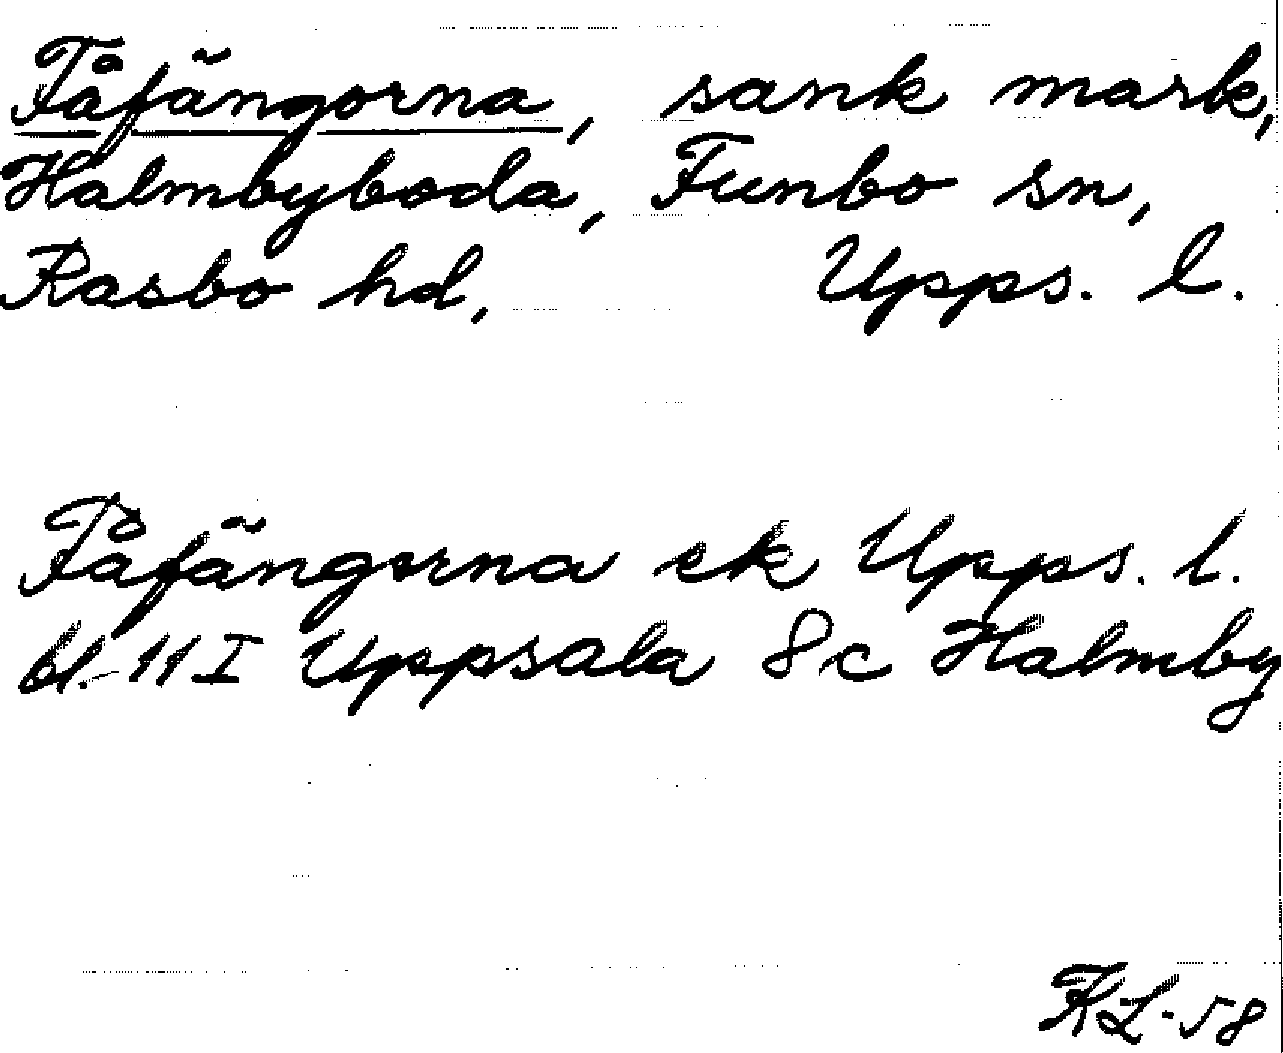 Fåfängorna, sank mark,
Halmbyboda, Funbo sn,
Rasbo hd, Upps. l.
Fåfängorna ek Upps. l.
bl. 11 I Uppsala 8c Halmby
KL-58